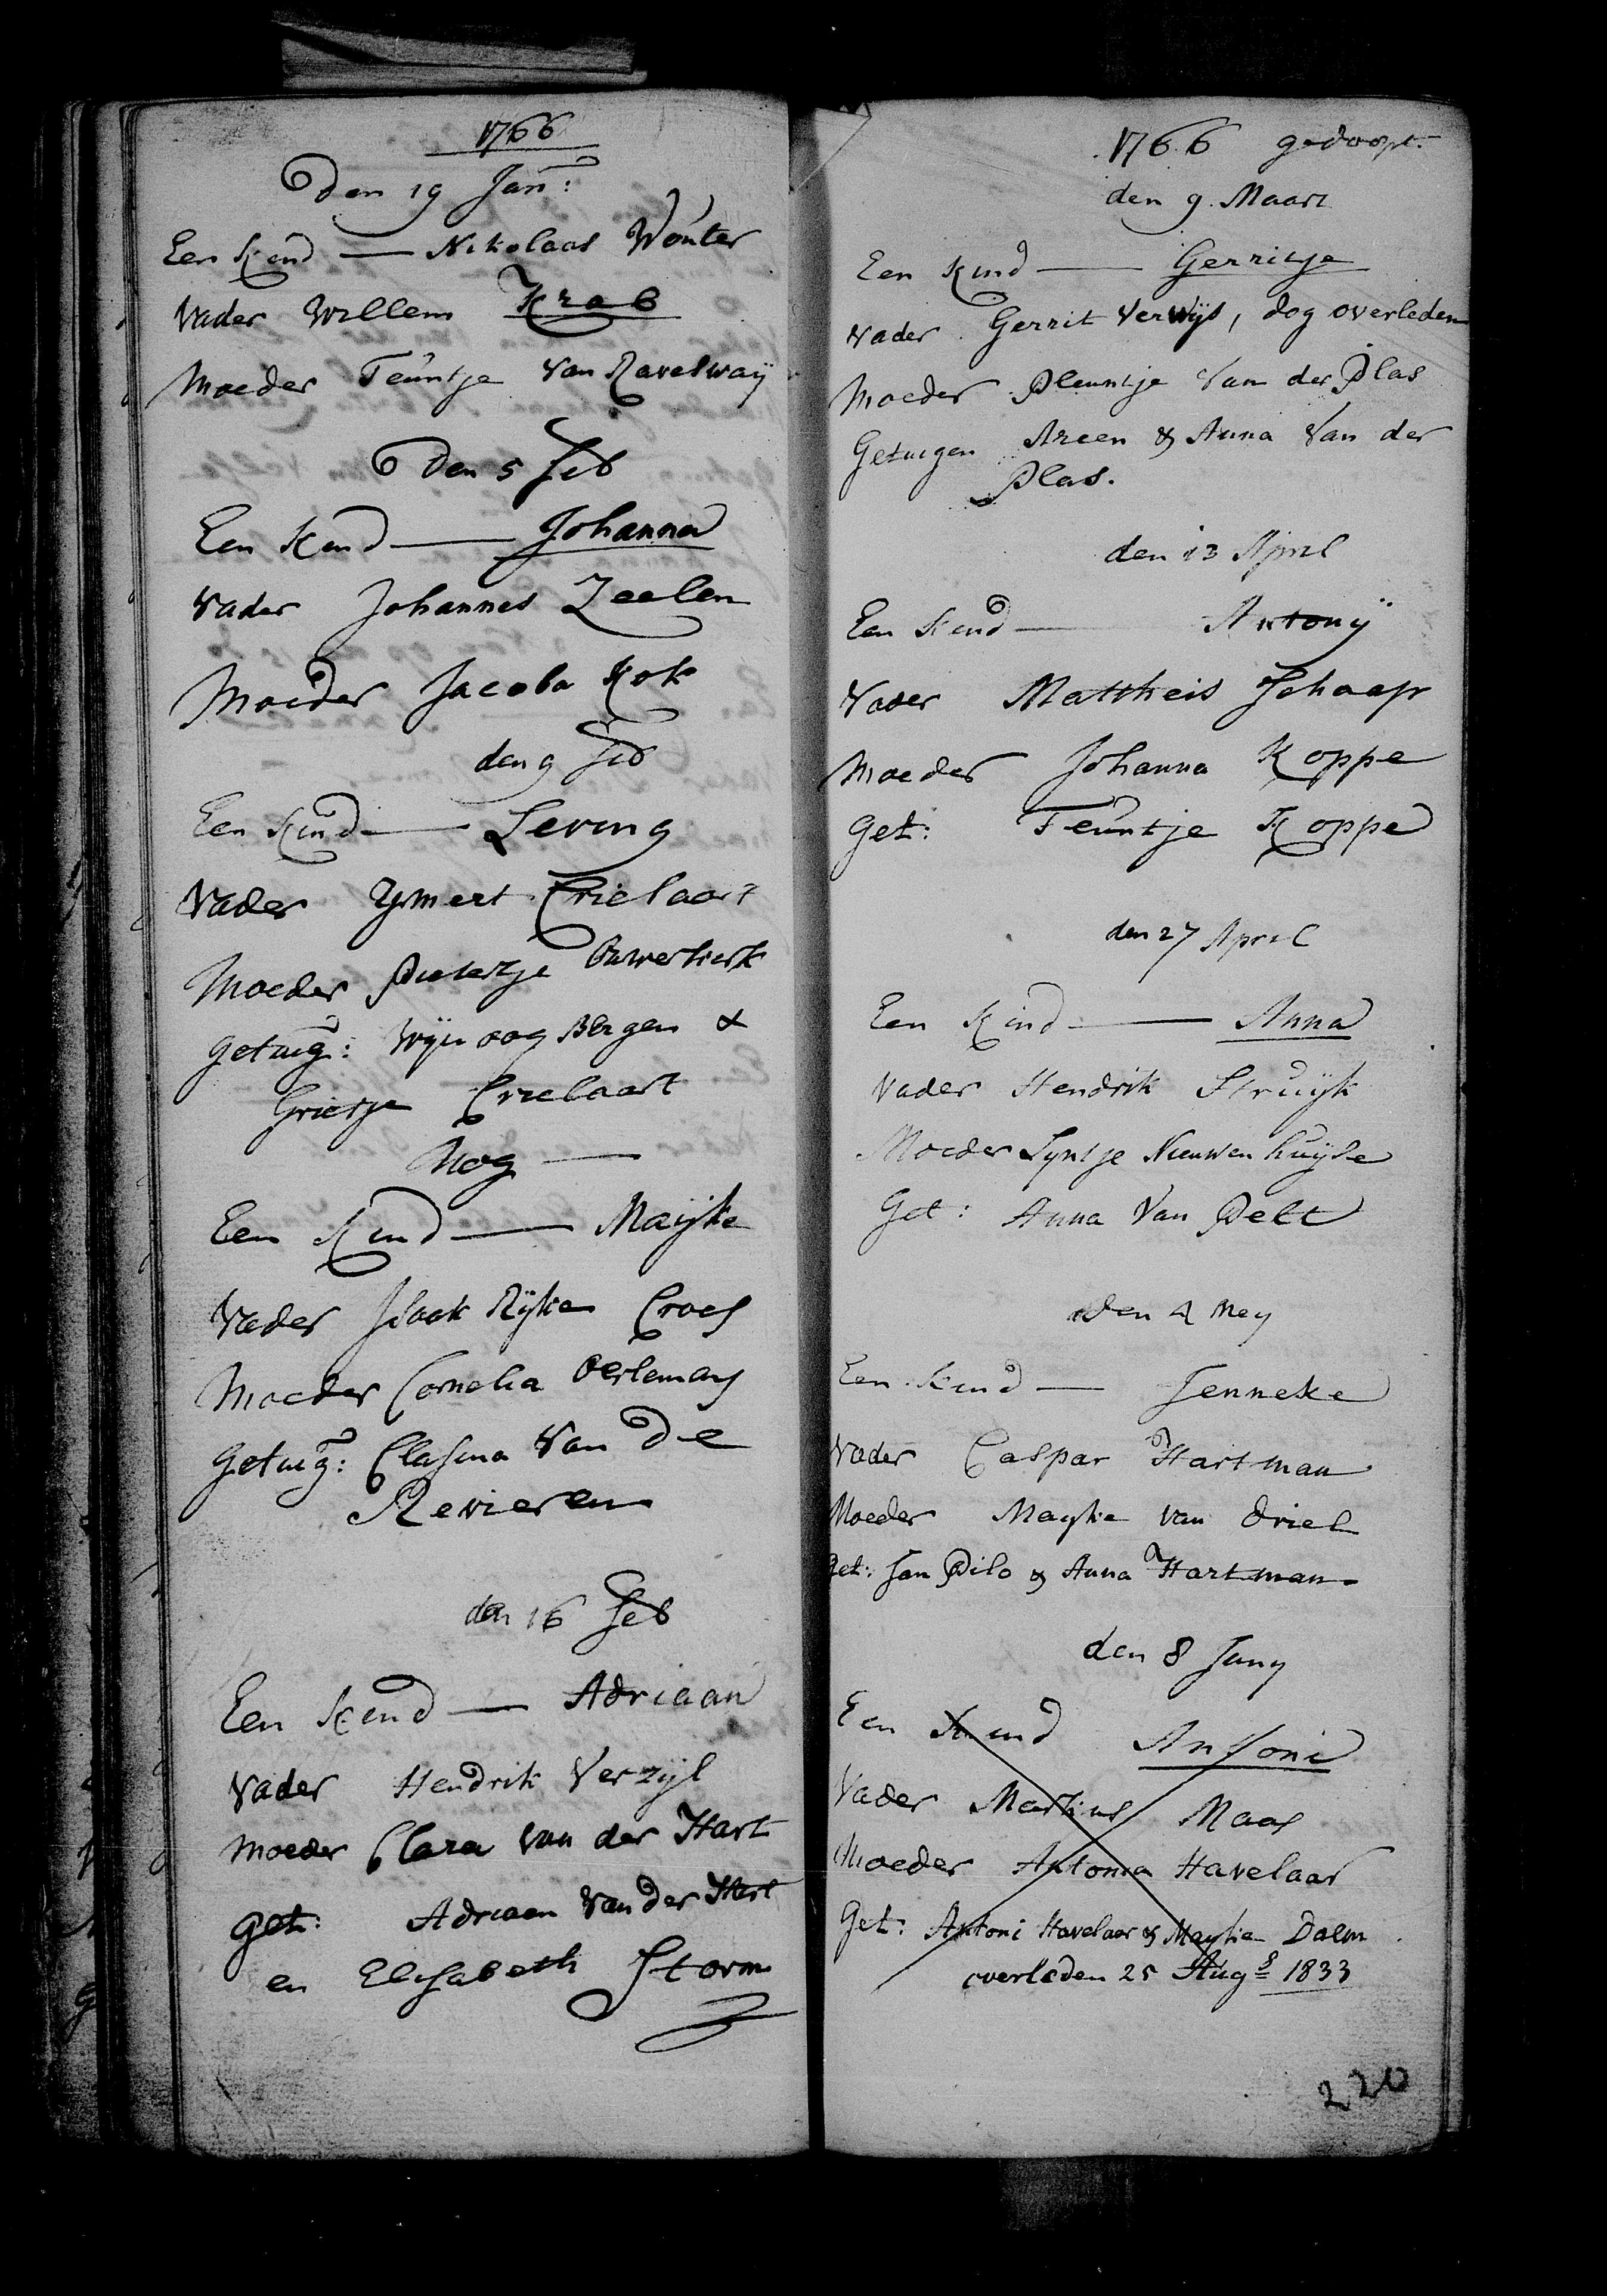 1766
den 19 Jan:
Een Kind — Nikolaas Wouter
Vader Willem Krab
Moeder Teuntje Van Ravelswaÿ
den 5 Feb
Een Kind — Johanna
Vader Johannes Zeelen
Moeder Jacoba Kok
den 9 Feb
Een Kind — Levina
Vader Ymert Crielaart
Moeder Pietertje Ouwerkerk
Getuig: Wyn oog Bergen &
Grietje Crielaart
Nog —
Een Kind — Maijke
Vader Isaak Rijke Croes
Moeder Cornelia Oerlemans
Getuig: Clasina Van De
Revieren
den 16 Feb
Een Kind — Adriaan
Vader Hendrik Verzijl
Moeder Clara van der Hart
Get: Adriaan Van der Hart
en Elisabeth Storm
1766 gedoopt
den 9. Maart
Een Kind — Gerritje
Vader Gerrit Verwijs, dog overleden
Moeder Pleuntje Van der Plas
Getuigen Areen & Anna Van der
Plas.
den 13 April
Een Kind — Antonÿ
Vader Mattheis Schaap
Moeder Johanna Koppe
Get: Teuntje Koppe
den 27 April
Een Kind — Anna
Vader Hendrik Struijk
Moeder Lyntje Nieuwenhuijse
Get: Anna Van Pelt
den 4 Mey
Een Kind — Jenneke
Vader Caspar Hartman
Moeder Mayke van Driel
Get: Jan Pilo & Anna Hartman
den 8 Juny
Een Kind Antoni
Vader Martinus Maas
Moeder Antonia Havelaar
Get: Antoni Havelaar & Mayke Dalm
overleden 25 Augs 1833
220